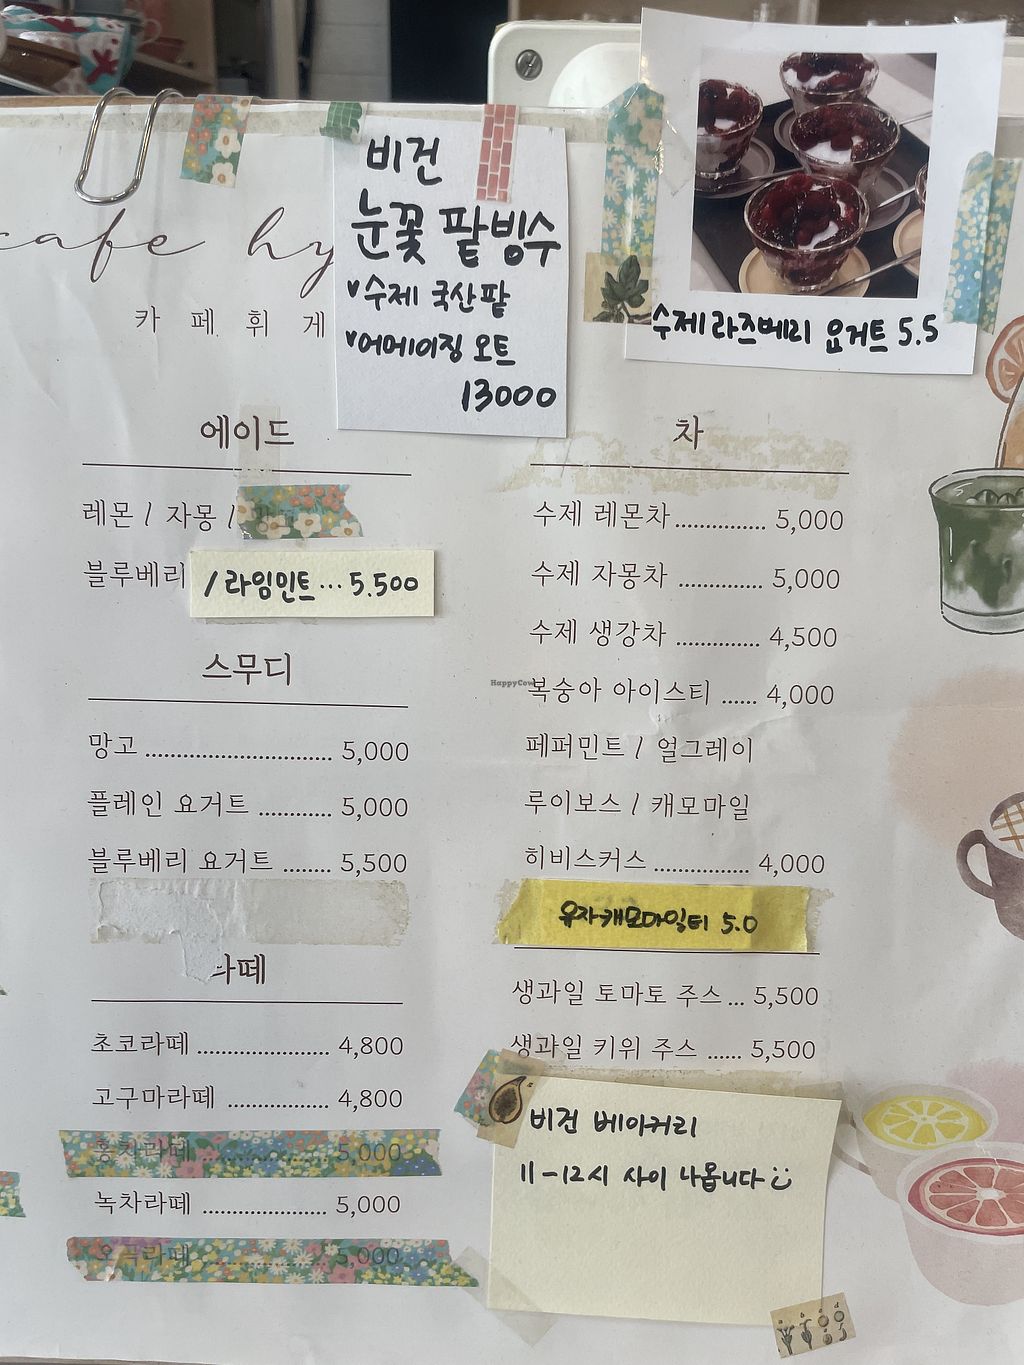 비건
눈꽃 팥빙수
♥수제 국산팥
♥어메이징 오트
13000
수제 라즈베리 요거트 5.5
cafe hy
카 페 휘 게
에이드
레몬 / 자몽 /
블루베리 / 라임민트 … 5.500
스무디
망고 ................................. 5,000
플레인 요거트 ............. 5,000
블루베리 요거트 ........ 5,500
라떼
초코라떼 ....................... 4,800
고구마라떼 .................. 4,800
홍차라떼 5,000
녹차라떼 ...................... 5,000
오곡라떼 ...................... 5,000
차
수제 레몬차 ............... 5,000
수제 자몽차 .............. 5,000
수제 생강차 .............. 4,500
HappyCow
복숭아 아이스티 ...... 4,000
페퍼민트 / 얼그레이
루이보스 / 캐모마일
히비스커스 ................. 4,000
유자캐모마일티 5.0
생과일 토마토 주스 ... 5,500
생과일 키위 주스 ...... 5,500
비건 베이커리
11-12시 사이 나옵니다